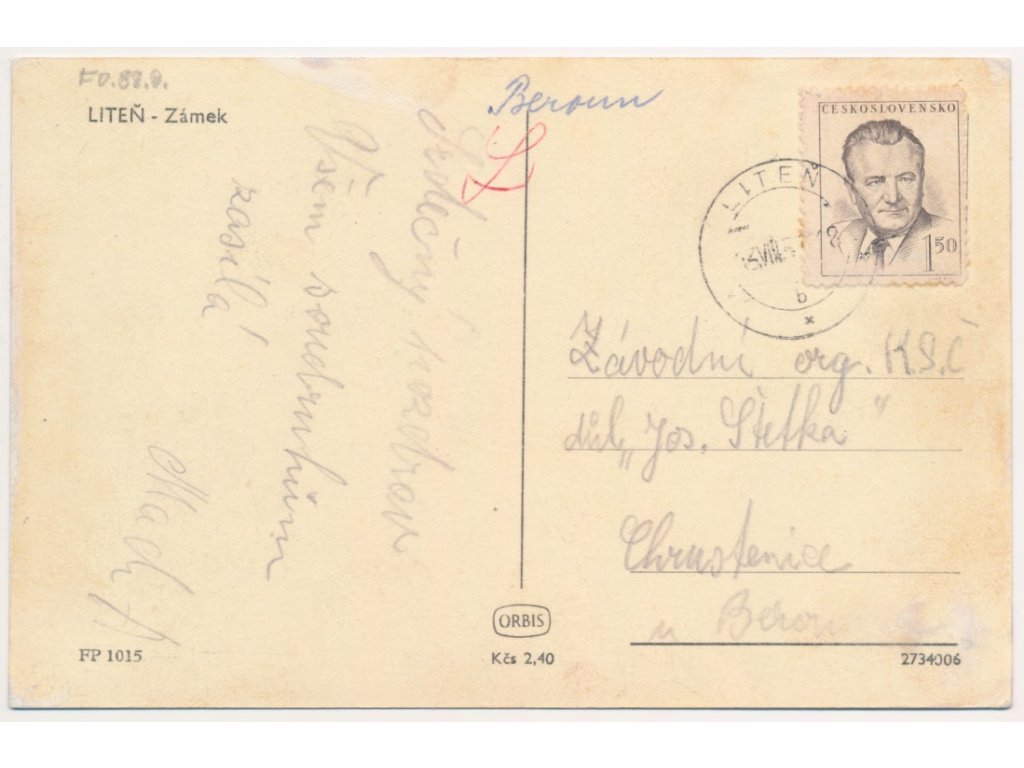 FD.88.9.
LITEŇ - Zámek
Srdečný pozdrav
Všem soudruhům
zasílá
Beroun
L
ČESKOSLOVENSKO
1 50
LITEŇ
b
Závodní org. KSČ
důl „Jos. Štefka"
Chrustenice
u Berou
ORBIS
FP 1015
Kčs 2,40
2734006